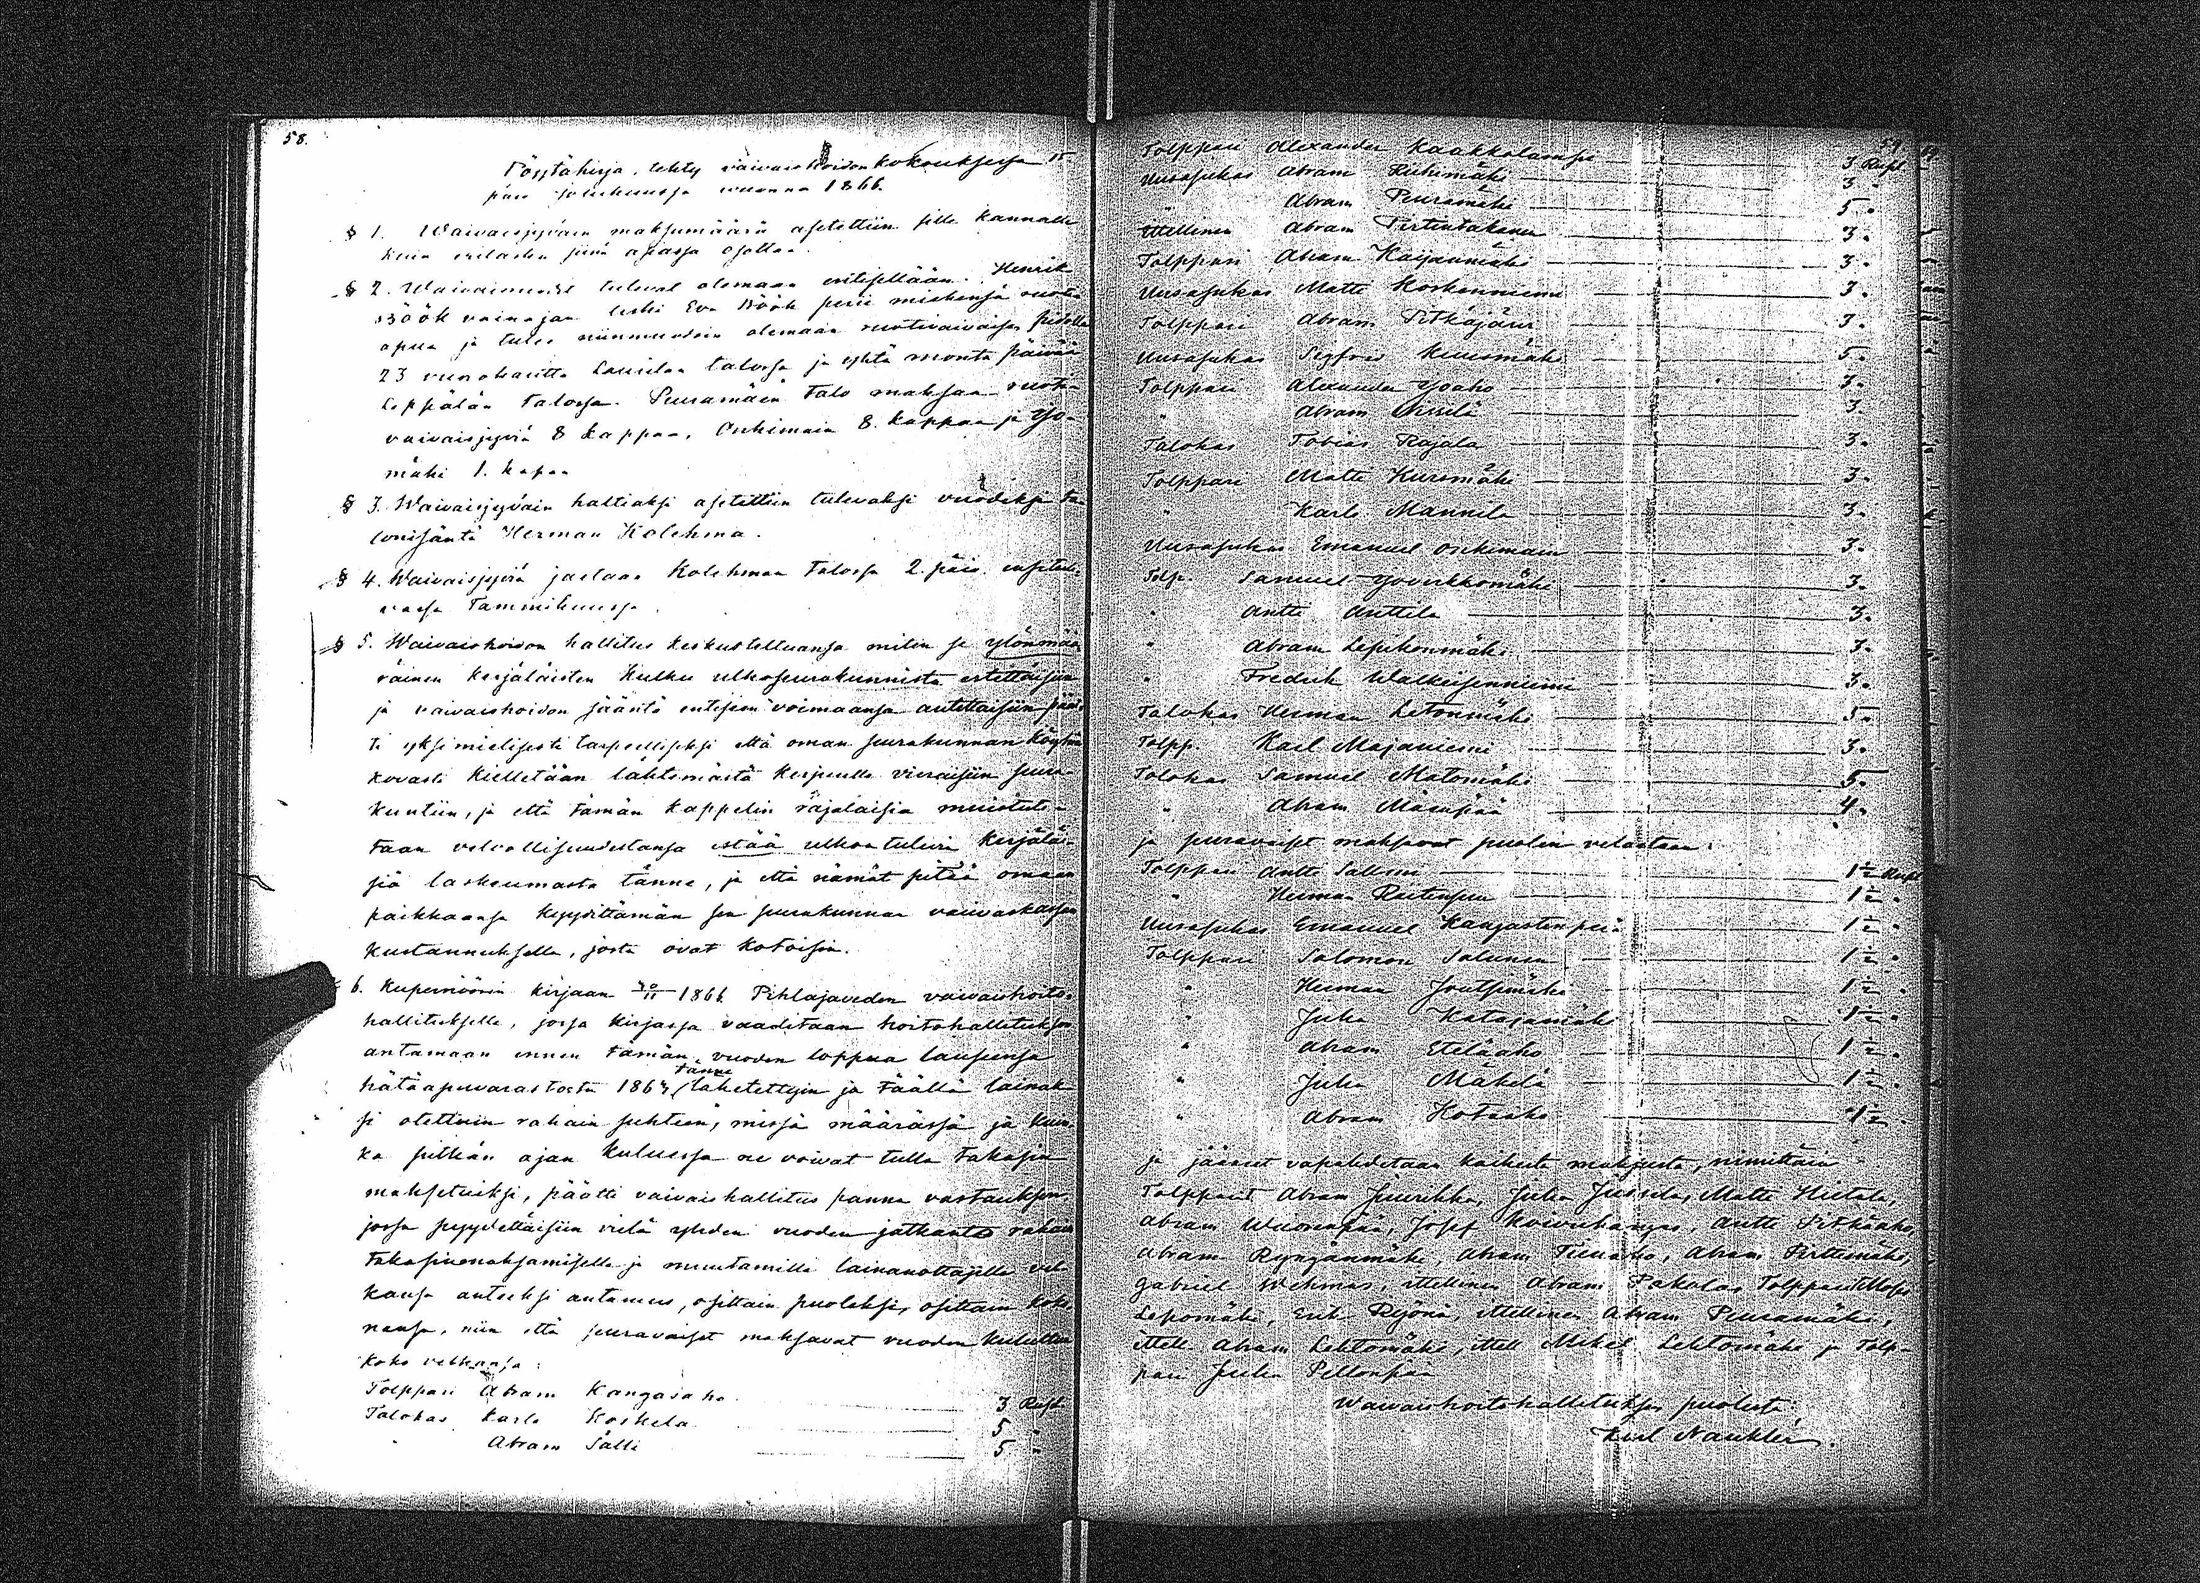 58.
Pöytäkirja, tehty vaivaishoidon kokouksessa 15
päiv Joulukuussa vuonna 1866.
§ 1. Waivaisjyväin maksumäärä asetettiin sille kannalle
kuin
§ 2. Waivaismiehet tulevat olemaan entisellään. Henrik
Böök vainajan leski Eva Böök perii miehensä ruoti-
apua ja tulee niinmuodoin olemaan ruotivaivaisen pidolla
23 vuorokautta Laurilan talossa ja yhtä monta päivää
Leppälän talossa. Peuramäen talo maksaa ruoti-
vaivaisjyviä 8 kappaa, Onkimain 8. kappaa ja Yjo-
mäki 1. kapan
§ 3. Waivaisjyväin haltiaksi asetettiin tulevaksi vuodeksi ta-
lonisäntä Herman Kolehma.
§ 4. Waivaisjyviä jaetaan Kolehman talossa 2. päiv. ensitule-
vassa Tammikuussa.
§ 5. Waivaishoidon hallitus keskusteltuansa miten se ylönmää-
räinen kerjäläisten kulku ulkoseurakunnista estettäisiin
ja vaivaishoidon sääntö entiseen voimaansa autettaisiin pää-
ti yksimielisesti tarpeelliseksi että oman seurakunnan köyhiä
kovasti kielletään lähtemästä kerjuulle vieraisiin seura-
kuntiin, ja että tämän kappelin rajalaisia muistute-
taan velvollisuudestansa estää ulkoa tulevia kerjäläi-
siä laskeumasta tänne, ja että nämät pitää omaan
paikkaansa kyydittämän sen seurakunnan vaivaskassan
kustannuksella, josta ovat kotoisin.
6. Kupernöörin kirjaan 20/11 1866 Pihlajaveden vaivaishoito-
hallitukselle, jossa kirjassa vaaditaan hoitohallituksen
antamaan ennen tämän vuoden loppua lausunsa
tänne
hätäapuvarastosta 1864 lähetettyin ja täällä lainak-
si otettuin rahain suhteen, missä määrässä ja kuin-
ka pitkän ajan kuluessa ne voivat tulla takasin
maksetuiksi, päätti vaivaishallitus panna vastauksen
jossa pyydettäisiin vielä yhden vuoden jatkanto rahan
takasinmaksamiselle ja muutamille lainanottajille vel-
kansa anteeksi antamus, osittain puoleksi, osittain koko-
nansa, niin että seuravaiset maksavat vuoden kuluttua
koko velkansa:
Tolppari Abram Kangasaho 3 Rupl.
Talokas Karle Koskela 5 "
Abram Salli 5 "
59
Tolppari Alexander Kaakkolampi 3 Rupl
Uusasukas Abram Riihimäki 3 "
Abram Peuramäki 5 "
Itellinen Abram Pirtintakanen 3 "
Tolppari Abram Kaijanmäki 3 "
Uusasukas Matti Koskenniemi 3 "
Tolppari Abram Pitkäjärvi 3 "
Uusasukas Sigfrid Kuusmäki 5 "
Tolppari Alexander Yoaho 3 "
" Abram 3 "
Talokas Tobias Rajala 3 "
Tolppari Matti Kursmäki 3 "
" Karle Mannila 3 "
Uusasukas Emanuel Onkimain 3 "
Tolp. Samuel 3 "
" Antti Anttila 3 "
" Abram Lepikonmäki 3 "
" Fredrik Walkeisenniemi 3 "
Talokas Herman Letonmäki 5 "
Tolpp. Karl Majaniemi 3 "
Talokas Samuel Matomäki 5 "
" Abram Mäenpää 4 "
ja seuravaiset maksavat puolen velastaan:
Tolppari Antti Sallini 1½ Rupl
" Herman 1½ "
Uusasukas Emanuel Kangastenpää 1½ "
Tolppari Salomon Salinen 1½ "
" Herman Joutsimäki 1½ "
" Juha Katajamäki 1½ "
" Abram Eteläaho 1½ "
" Juha Mäkelä 1½ "
" Abram Kotaaho 1½ "
ja jäänet vapahdetaan kaikesta maksusta, nimittäin
Tolpparit Abram Juurikka, Juha Jussila, Matti Hietala,
Abram Wuorenpää, Josef Koivukangas, Antti Pitkäaho,
Abram Ryngänmäki, Abram Tienaho, Abram Pirttimäki,
Gabriel Wehmas, itellinen Abram Pakalas, Tolpparit
Lepomäki, Erik Ryönä, itellinen Abram Peuramäki,
itell. Abram Lehtomäki, itell Mikel Lehtomäki ja Tolp-
pari Juha Pellonpää
Waivaishoitohallituksen puolesta:
Karl Nauklér.